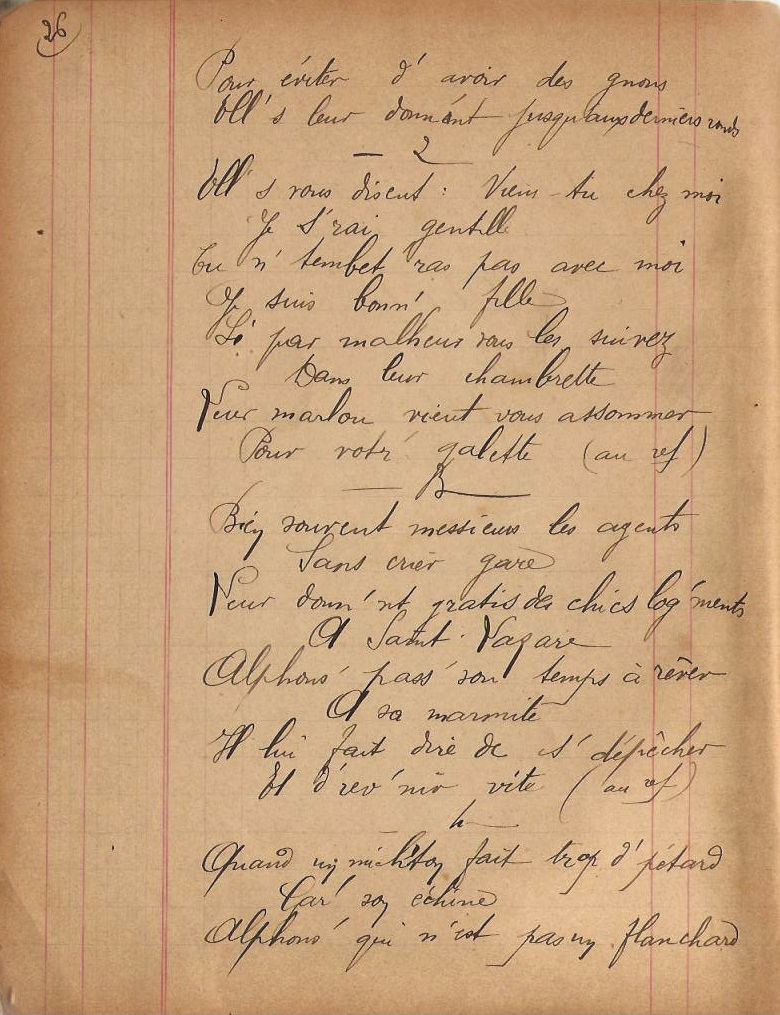 26
Pour éviter d' avoir des gnons
Ell's leur donn'nt jusqu'aux derniers ronds
2
Ell's vous disent : Viens-tu chez moi
Je s'rai gentille
Tu n' tembet'ras pas avec moi
Je suis bonn' fille
Si par malheur vous les suivez
Dans leur chambrette
Leur marlou vient vous assommer
Pour votr' galette (au ref)
3
Bien souvent messieurs les agents
Sans crier gare
Leur donn'nt gratis des chics log'ments
A Saint-Lazare
Alphons' pass' son temps à rêver
A sa marmite
Il lui fait dire de s' dépêcher
Et d'rev'nir vite (au ref)
4
Quand un mich'ton fait trop d' pétard
Gar' son échine
Alphons' qui n'est pas un flanchard